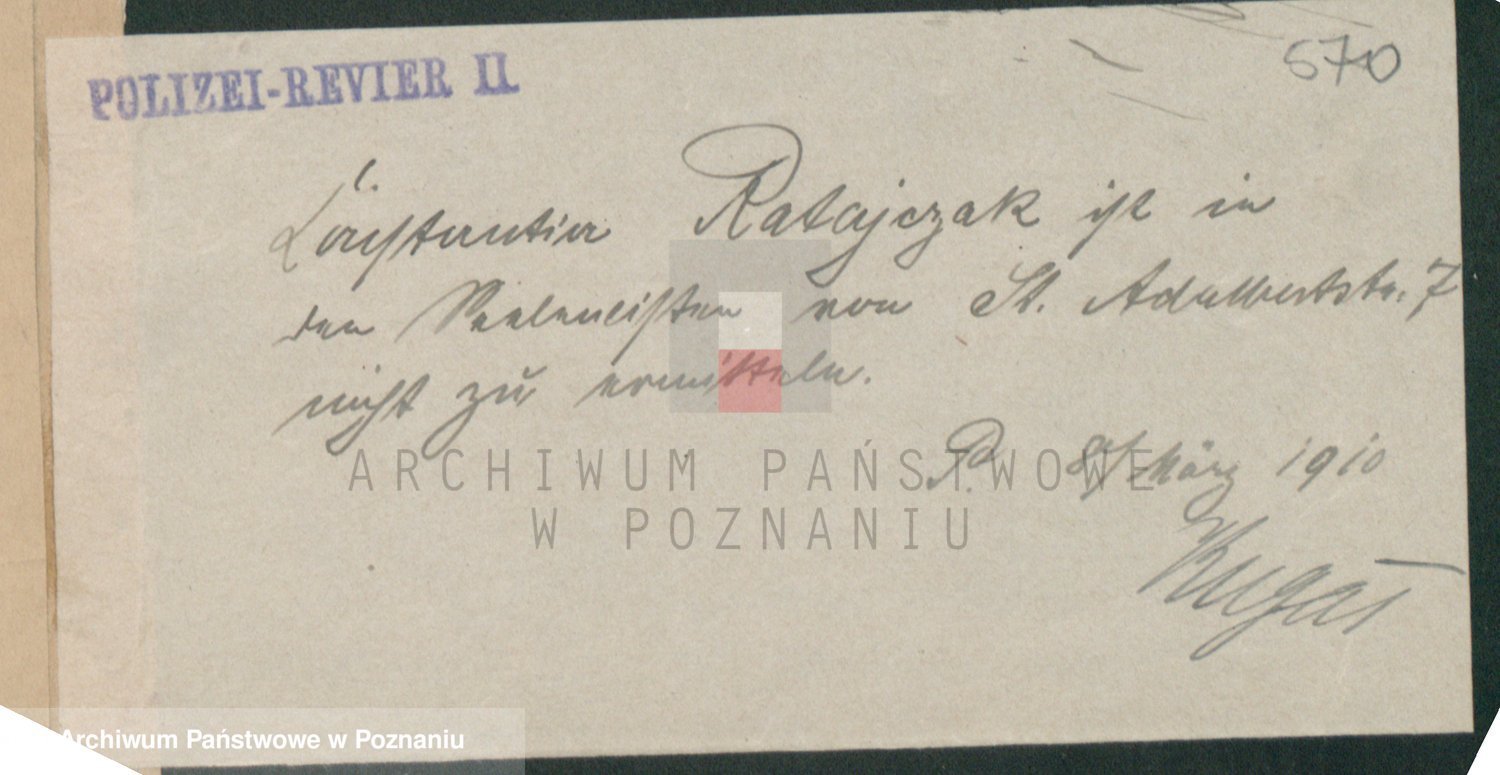 570
POLIZEI-REVIER II.
Constantin Ratajczak ist in
den Seelenlisten von St. Adalbertstr. 7
nicht zu ermitteln.
P. März 1910
ARCHIWUM PAŃSTWOWE
W POZNANIU
Archiwum Państwowe w Poznaniu